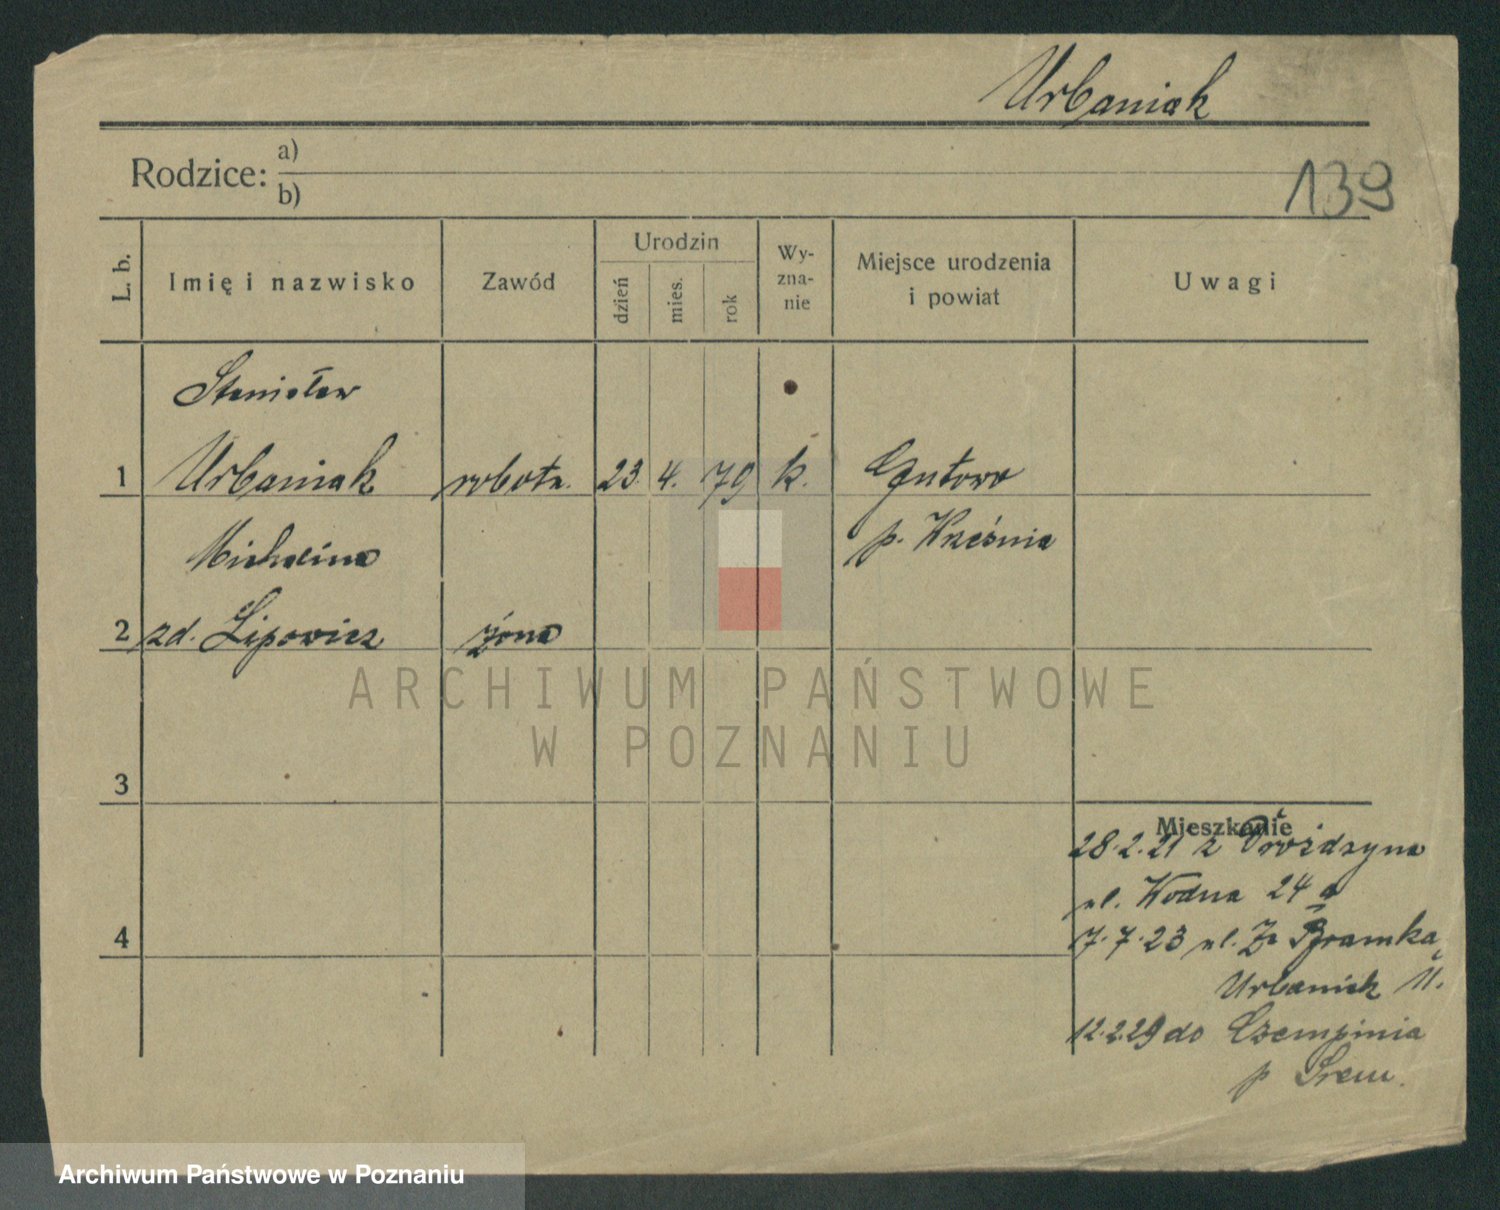 Urbaniak
139
Rodzice: a)
b)
L. b.
Imię i nazwisko
Zawód
Urodzin
dzień
mies.
rok
Wy-
zna-
nie
Miejsce urodzenia
i powiat
Uwagi
Stanisław
1 Urbaniak robotn. 23. 4. 79 k. Gutowo
p. Września
Michalina
2 zd. Lipowicz żona
3
Mieszkanie
28.2.21 z Drożdzyna
ul. Wodna 24 a
4
7.7.23 ul. Za Bramką
Urbaniak
12.2.29 do Czempinia
p Śrem.
ARCHIWUM PAŃSTWOWE
W POZNANIU
Archiwum Państwowe w Poznaniu